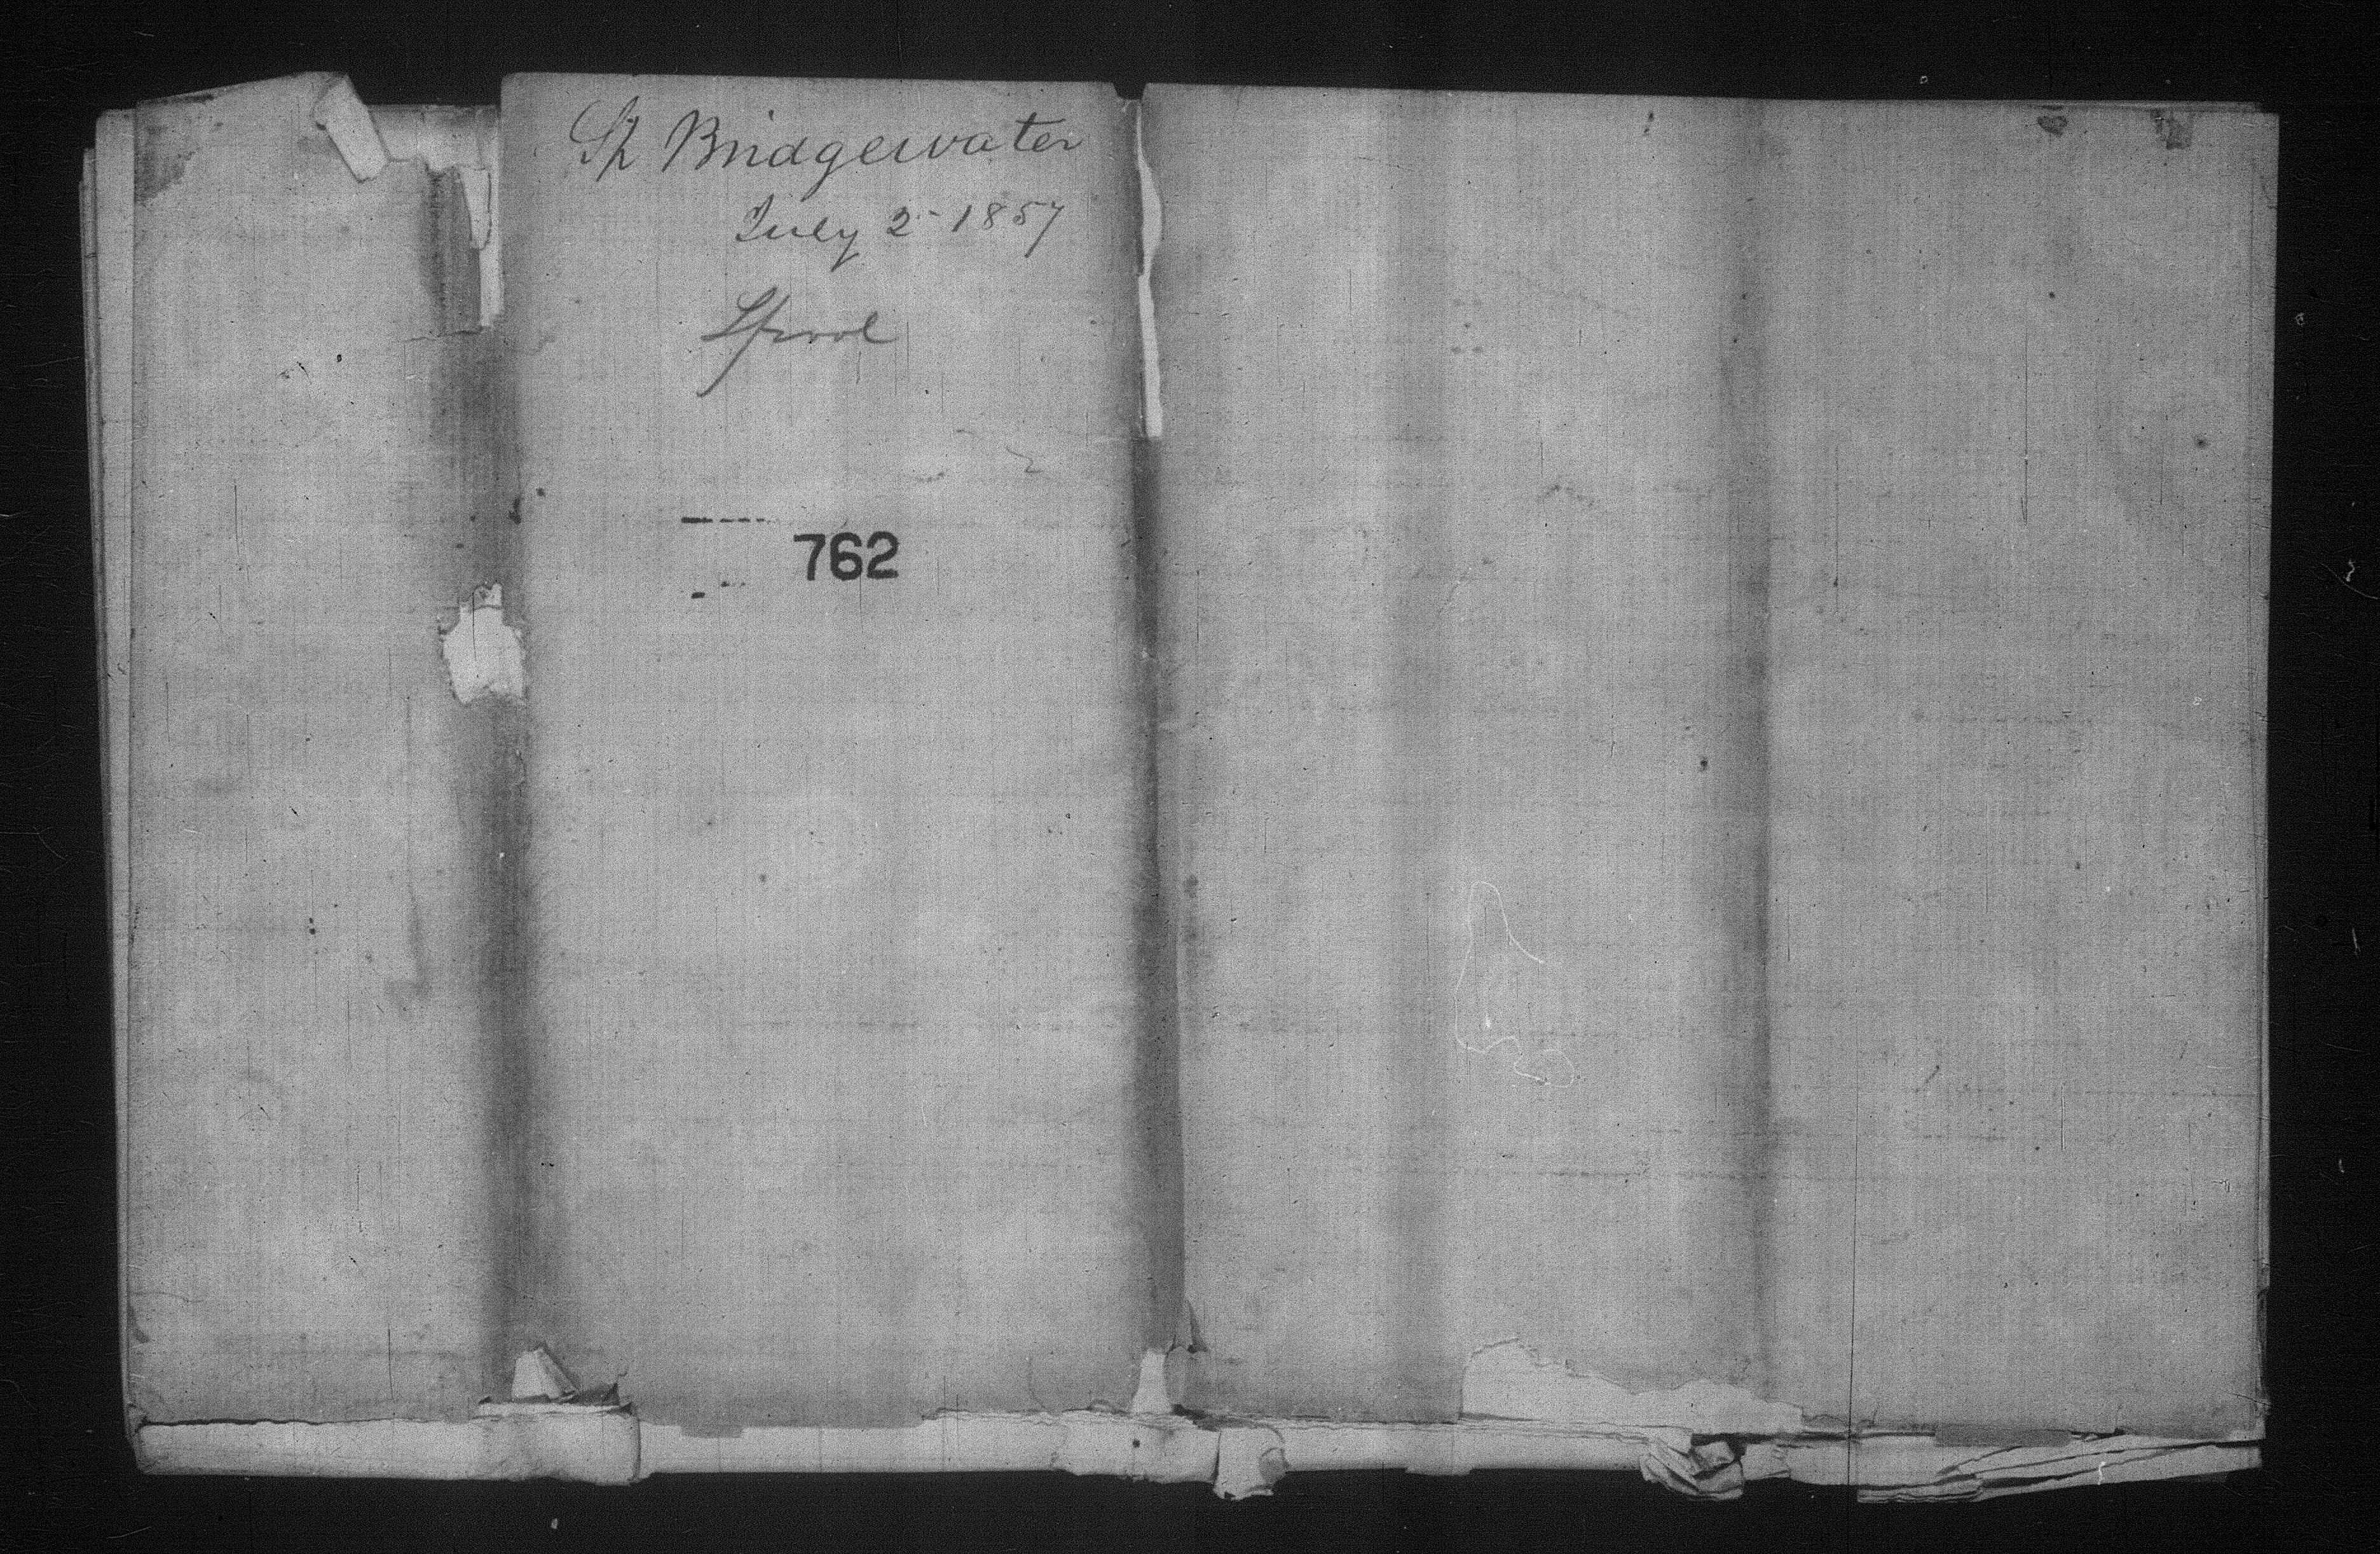 Sh Bridgewater
July 2 - 1857
Lpool
762